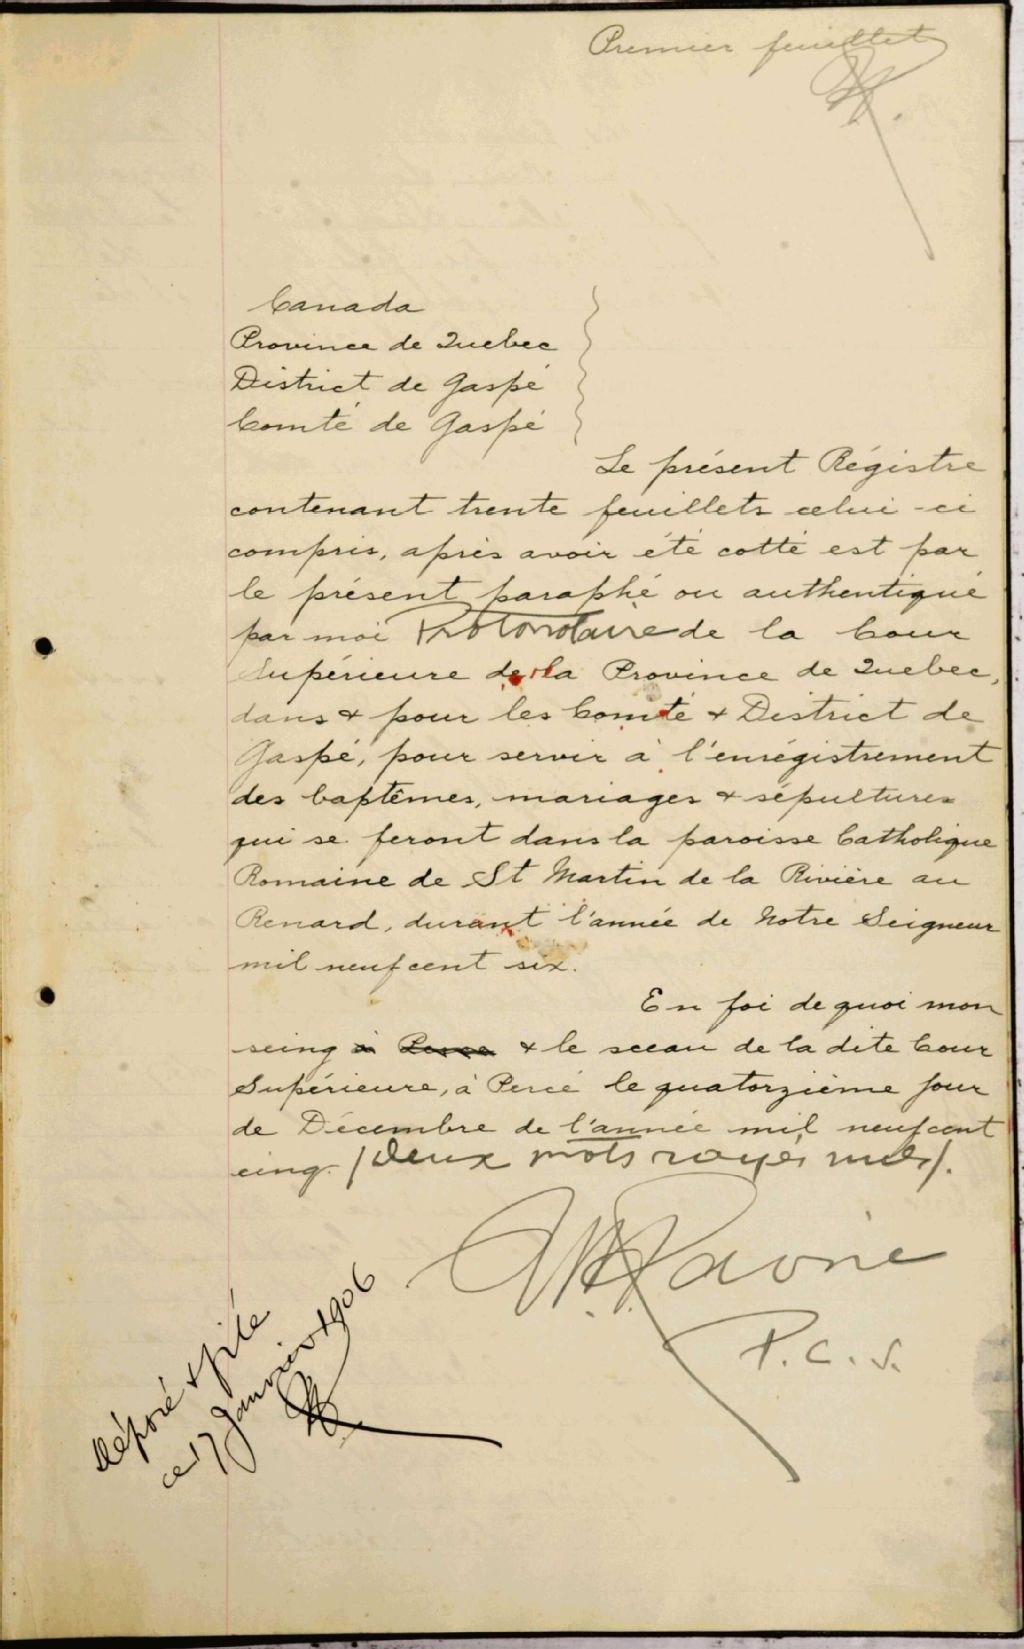 Premier feuillet
Canada
Province de Quebec
District de Gaspé
Comté de Gaspé
Le présent Régistre
contenant trente feuillets celui-ci
compris, après avoir été cotté est par
le présent paraphé ou authentiqué
par moi Protonotaire de la Cour
Supérieure de la Province de Quebec,
dans & pour les Comté & District de
Gaspé, pour servir à l'enrégistrement
des baptêmes, mariages & sépultures
qui se feront dans la paroisse Catholique
Romaine de St Martin de la Rivière au
Renard, durant l'année de Notre Seigneur
mil neuf cent six.
En foi de quoi mon
seing & le sceau de la dite Cour
Supérieure, à Percé le quatorzième jour
de Décembre de l'année mil neuf cent
cinq. (Deux mots rayés nuls).
P.C.S.
Déposé & filé
ce 17 Janvier 1906